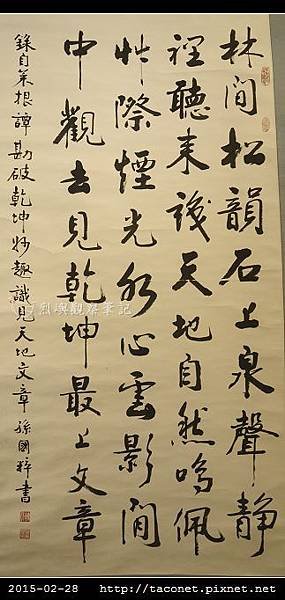 林間松韻石上泉聲靜
裡聽來識天地自然鳴佩
艸際煙光水心雲影閒
中觀去見乾坤最上文章
錄自菜根譚勘破乾坤妙趣識見天地文章孫國粹書
烈嶼觀察筆記
2015-02-28 http://taconet.pixnet.net